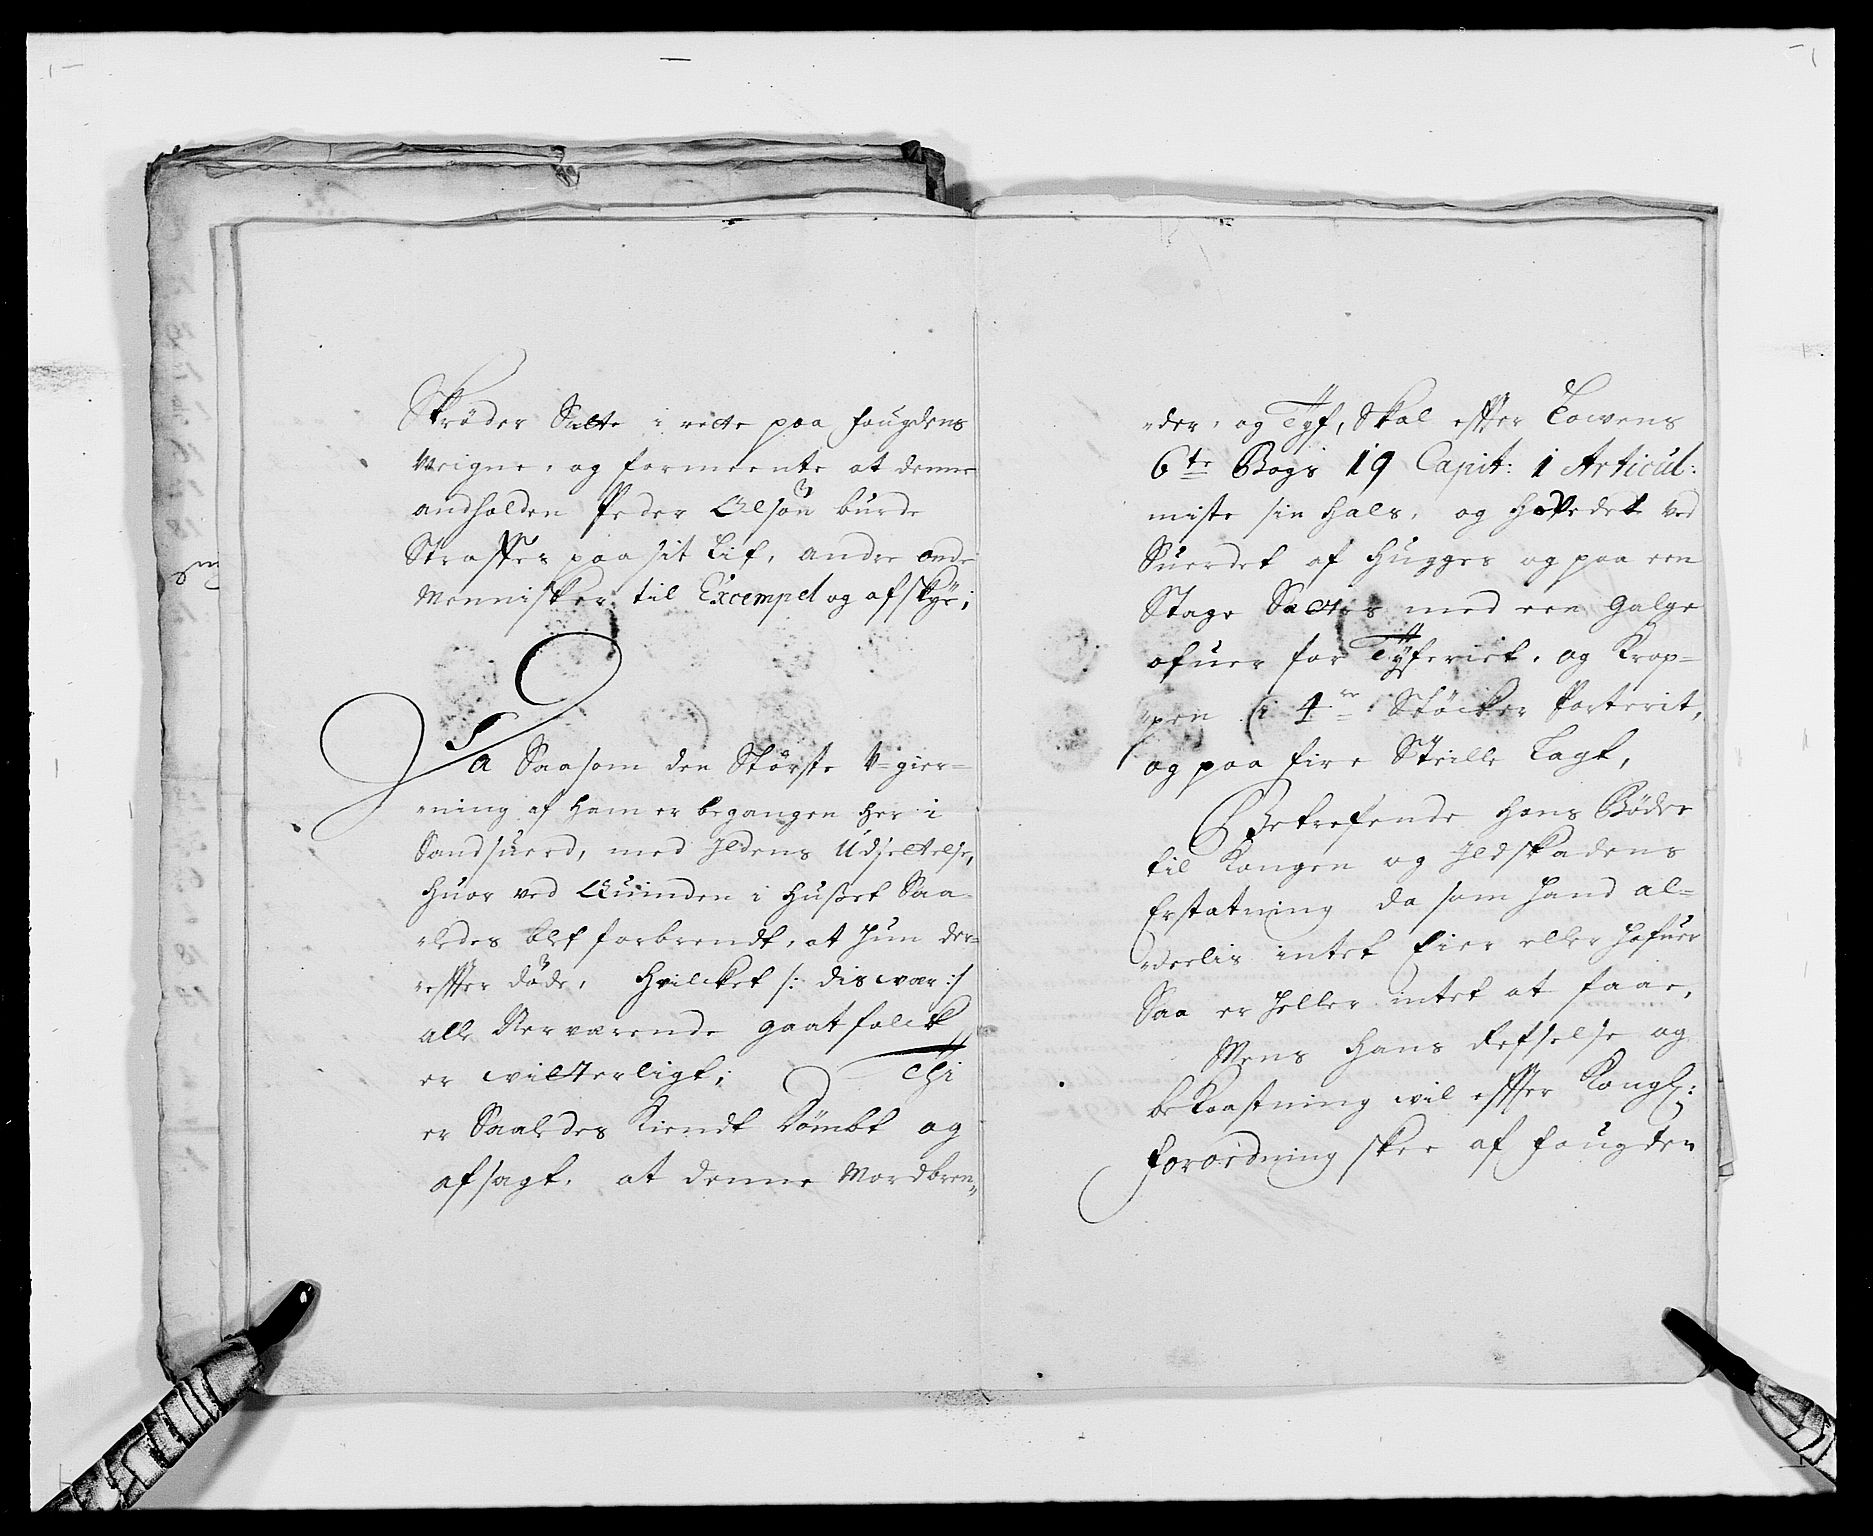 Skrøder Sætte i rette paa fougdens
Weigne, og formeente at denne
andholden Peder Olsøn burde
Straffes paa sit Lif, andre onde
Mennisker til Exempel og afskye;
Da Saasom den Største V-gier-
ning af ham er begangen her i
Sandsuerd, med Jldens Udsettelse,
huor ved Quinden i Huset Saa-
ledes blef forbrendt, at hun der-
effter døde, hvilcket /: dis wær :/
alle Nerværende gaat folck
er witterligt; Thi
er Saaledes Kiendt Dømbt og
afsagt, at denne Mordbren-
der, og Tyf, Skal effter Lowens
6te Bogs 19 Capit: 1 Articul:
miste sin hals, og Hovedet ved
Suerdet af hugges og paa een
Stage Settes med een galge
ofuer for Tyferiet, og Krop-
pen i 4re Støcker Parterit,
og paa fire Steille Lagt,
Betrefende hans Bøder
til Kongen og Jldskadens
Erstatning da som hand al-
deelis intet Eier eller hafuer
Saa er heller intet at faae,
Mens hans Refselse og
bekaastning wil effter Kongl:
forordning skee af fougden